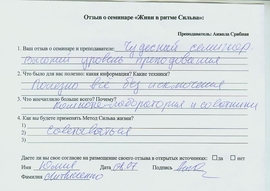 Отзыв о семинаре «Живи в ритме Сильва»:
Преподаватель: Анжела Срибная
1. Ваш отзыв о семинаре и преподавателе: Чудесный семинар.
Высокий уровень преподавания
2. Что было для вас полезно: какая информация? Какие техники?
Полезно всё без исключения
3. Что впечатлило больше всего? Почему?
Комната-лаборатория и советники
4. Как вы будете применять Метод Сильва жизни?
Даете ли вы свое согласие на размещение своего отзыва в открытых источниках: да нет
Имя Юлия Дата Подпись
Фамилия